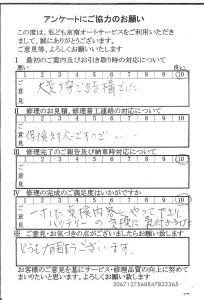 アンケートにご協力のお願い
この度は、私ども京南オートサービスをご利用いただき
まして、誠にありがとうございます。
ご意見等、よろしくお願いいたします
Ⅰ 最初のご案内及びお引き取り時の対応について
悪い 良い
1 2 3 4 5 6 7 8 9 10
大変丁寧でお応対でした
Ⅱ 修理のお見積、修理着工連絡の対応について
1 2 3 4 5 6 7 8 9 10
保険対応ですので・・・・
Ⅲ 修理完了のご報告及び納車時対応について
1 2 3 4 5 6 7 8 9 10
Ⅳ 修理の完成のご満足度はいかがですか
1 2 3 4 5 6 7 8 9 10
※ご意見・お気づきの点がございましたらお願い致します
どうも有難うございます。
お客様のご意見を基にサービス・修理品質の向上に努めて
まいりたいと思います。よろしくお願い致します。
3067127568847822365